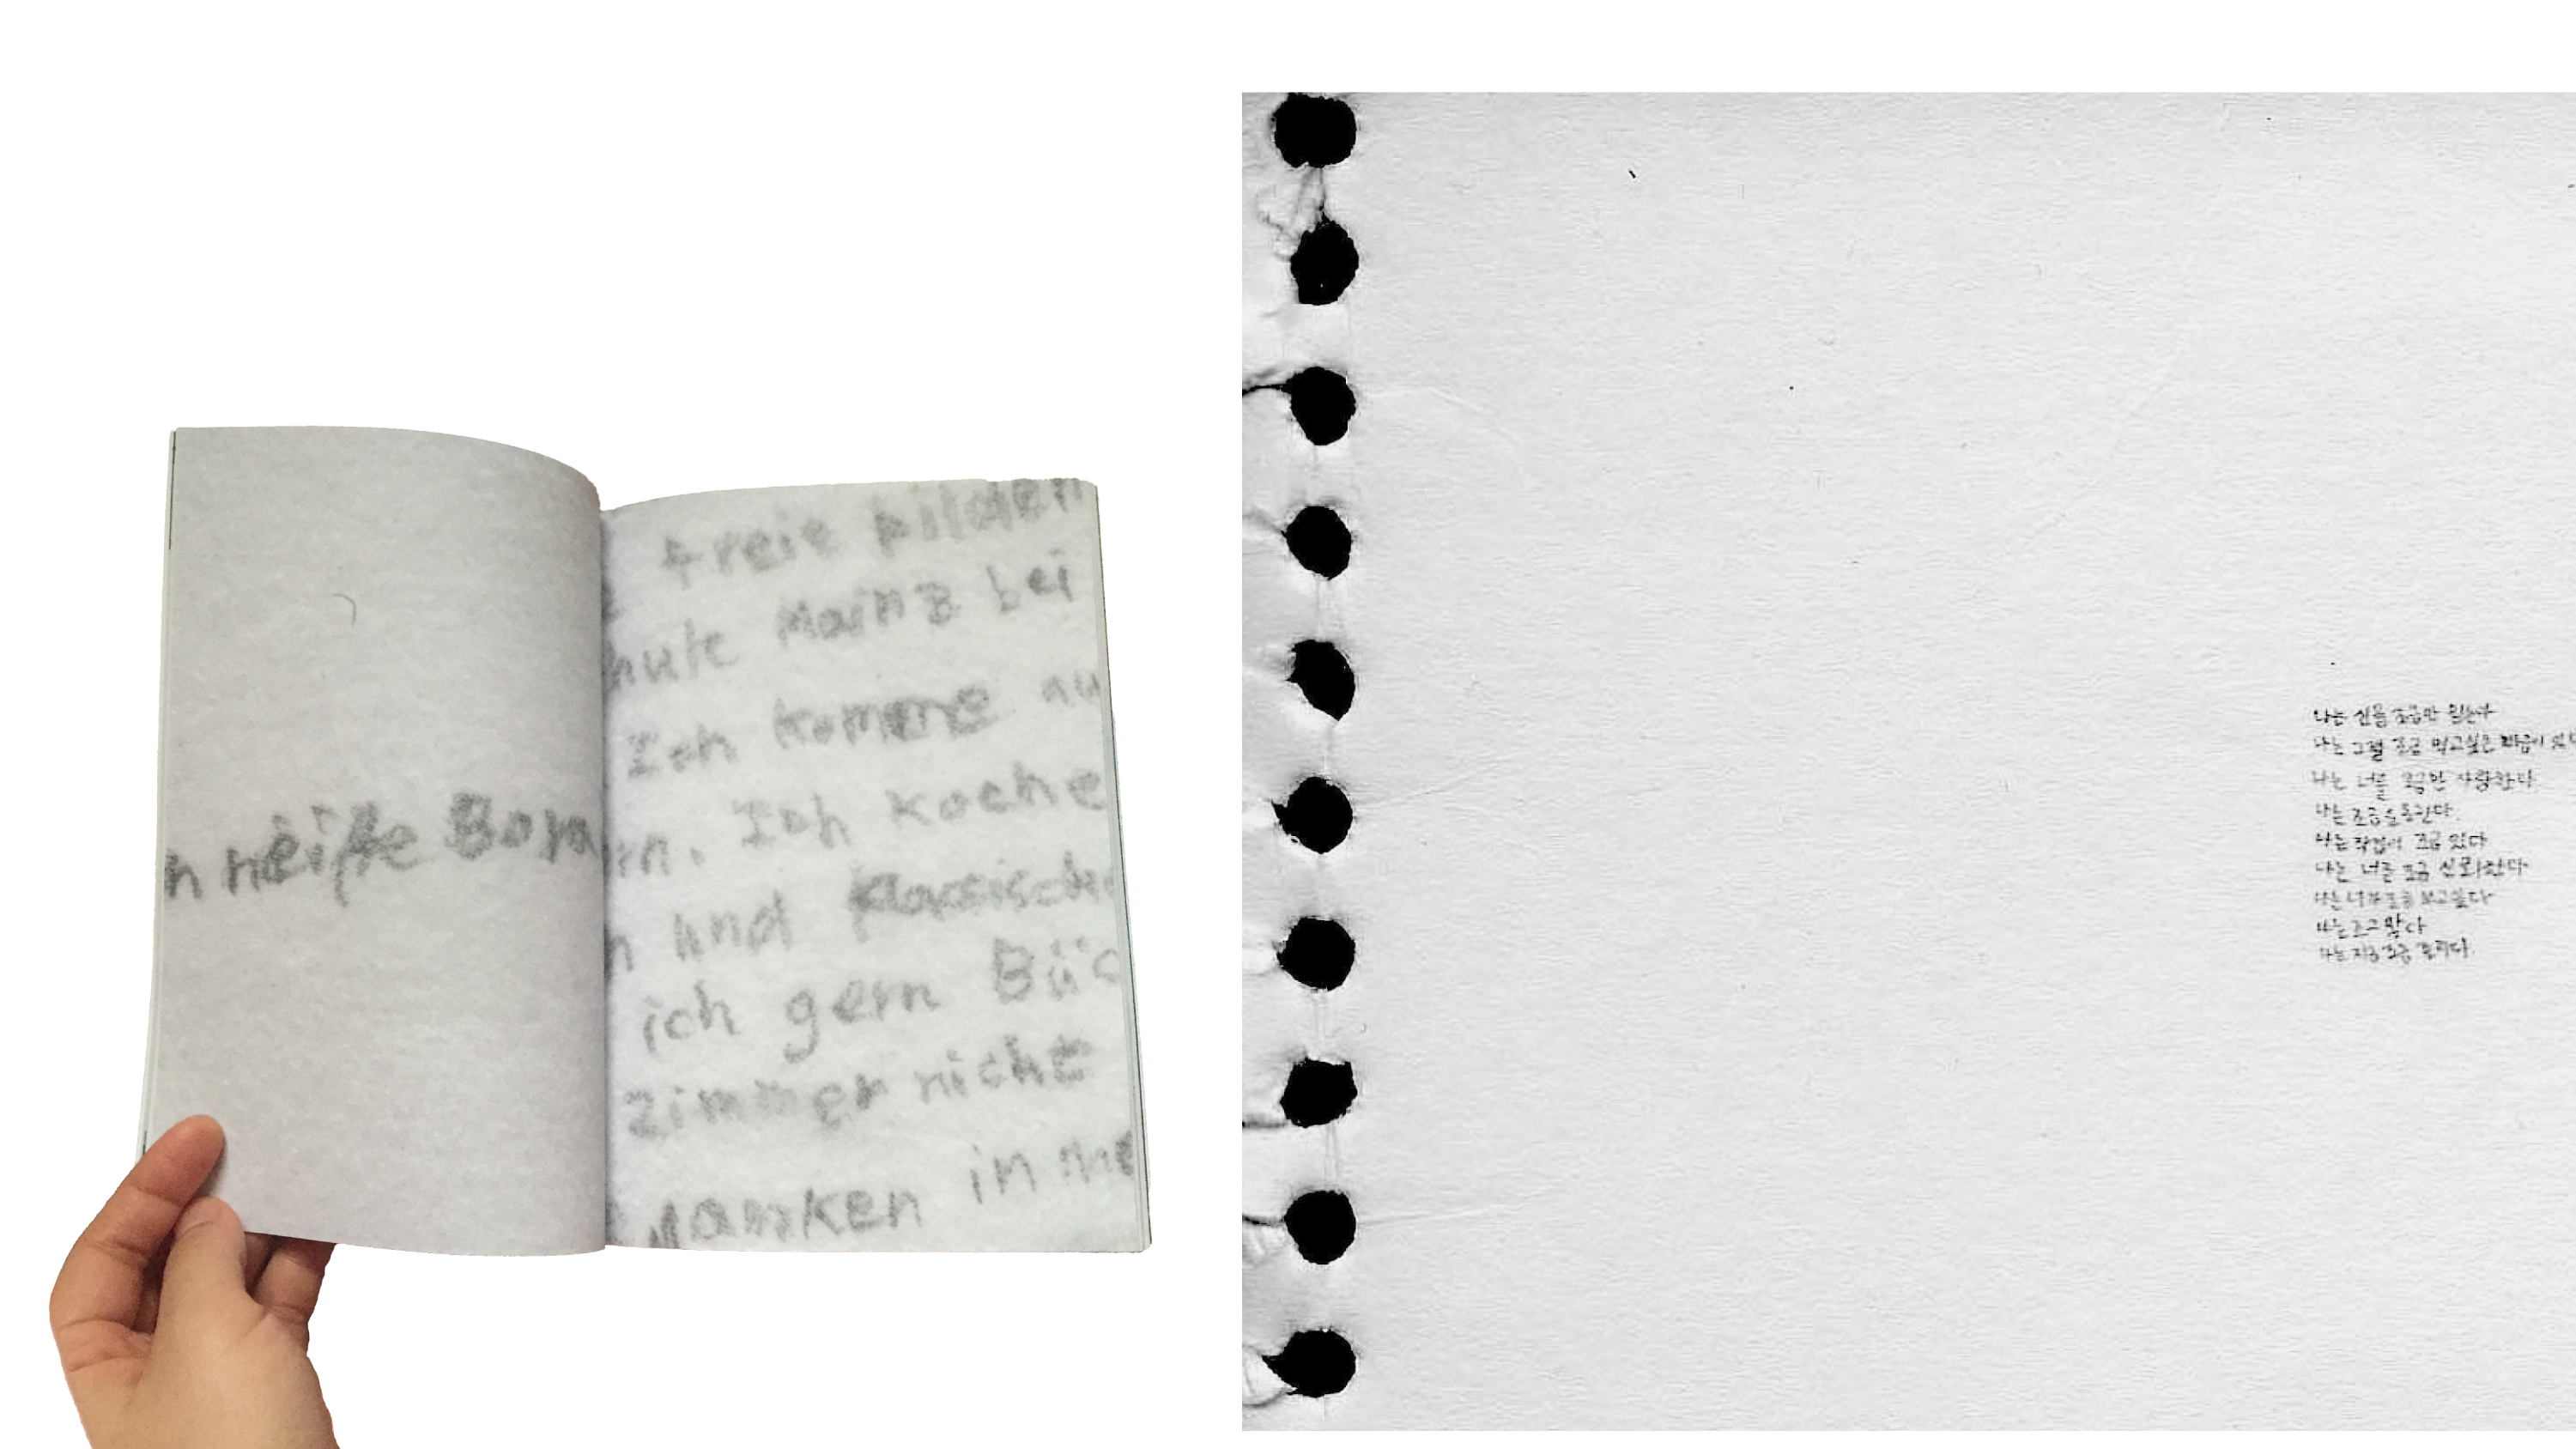 n heiße Bora
freie bilden
hule Mainz bei
Ich komme au
rn. Ich koche
n und klassische
ich gern Büc
zimmer nicht
in me
나는 조금만
나는 그걸 조금 먹고싶은 마음이
나는 너를 조금만 사랑한다.
나는 조금
나는 작업이 조금 있다
나는 너를 조금 신뢰한다
나는 너가 조금 보고싶다
나는
나는 지금 조금